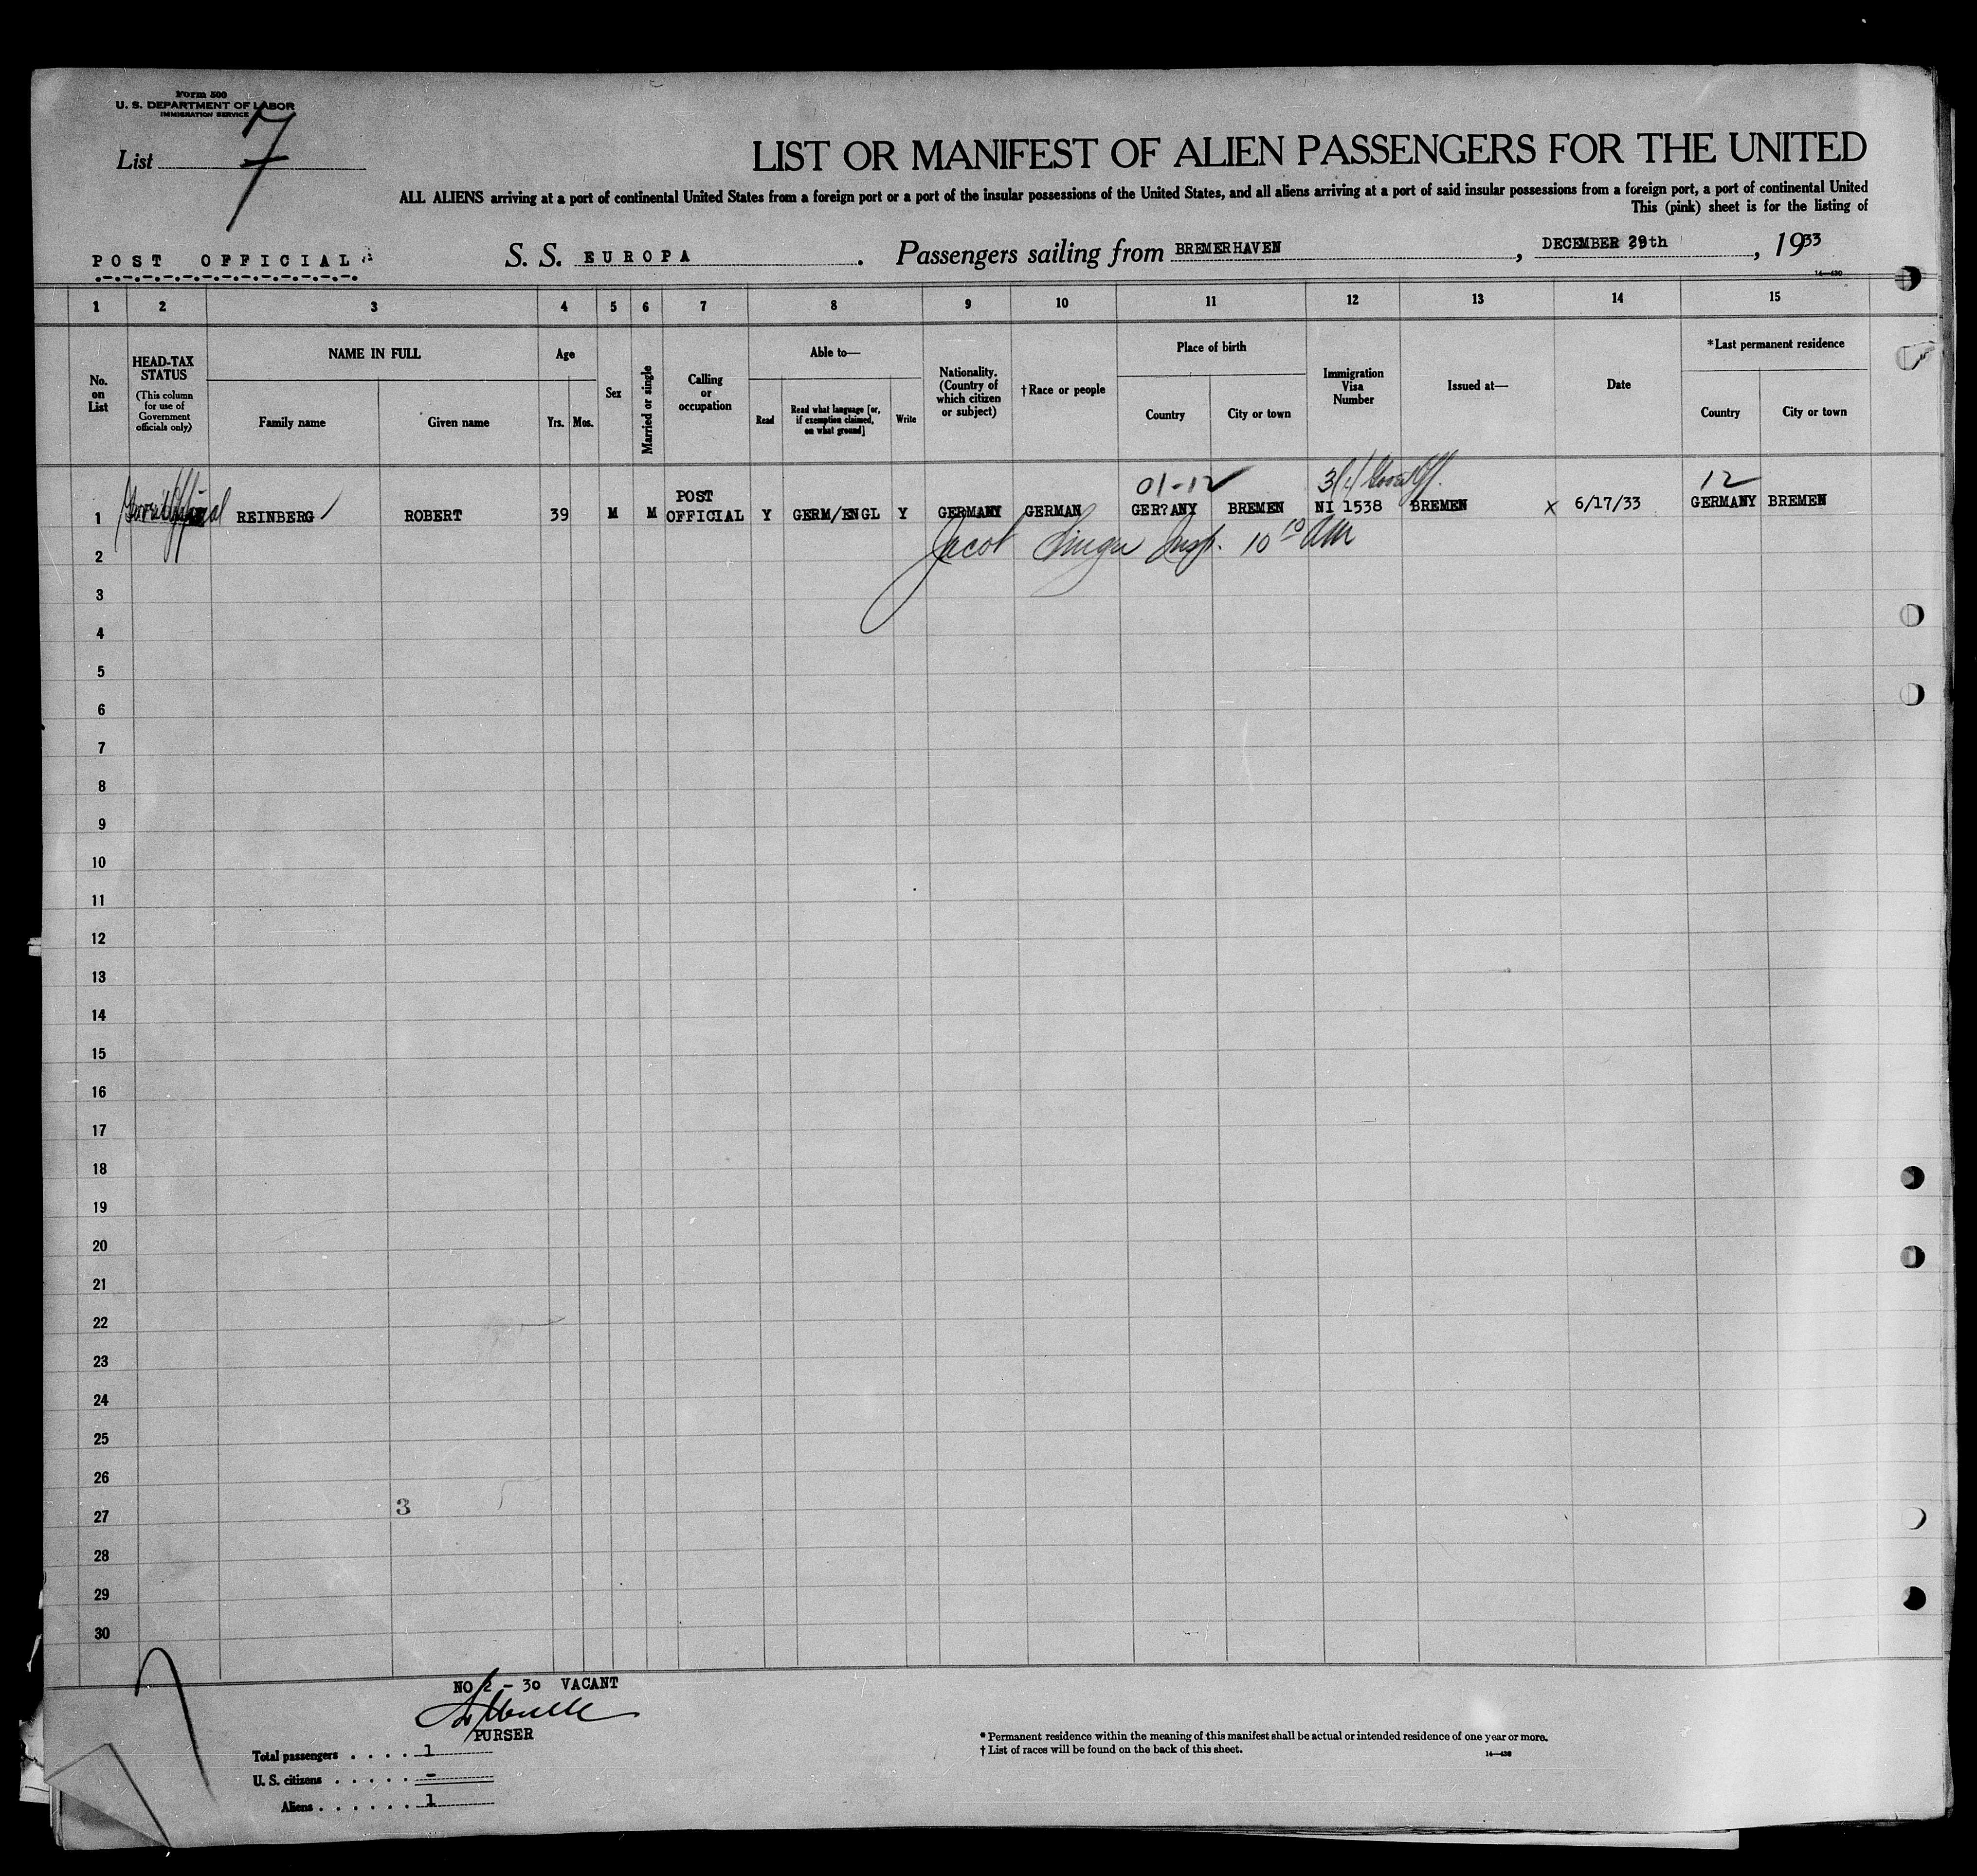 Form 500
U. S. DEPARTMENT OF LABOR
IMMIGRATION SERVICE
List 7
LIST OR MANIFEST OF ALIEN PASSENGERS FOR THE UNITED
ALL ALIENS arriving at a port of continental United States from a foreign port or a port of the insular possessions of the United States, and all aliens arriving at a port of said insular possessions from a foreign port, a port of continental United
This (pink) sheet is for the listing of
POST OFFICIAL
S. S. EUROPA. Passengers sailing from BREMERHAVEN, DECEMBER 29th, 1933
14—430
1 2 3 4 5 6 7 8 9 10 11 12 13 14 15
No. on List
HEAD-TAX STATUS
(This column for use of Government officials only)
NAME IN FULL
Family name
Given name
Age
Yrs. Mos.
Sex
Married or single
Calling or occupation
Able to—
Read
Read what language [or, if exemption claimed, on what ground]
Write
Nationality. (Country of which citizen or subject)
†Race or people
Place of birth
Country
City or town
Immigration Visa Number
Issued at—
Date
*Last permanent residence
Country
City or town
01-12 3(1) Govt Off. 12
1 Gov't Official REINBERG ROBERT 39 M M POST OFFICIAL Y GERM/ENGL Y GERMANY GERMAN GER?ANY BREMEN NI 1538 BREMEN x 6/17/33 GERMANY BREMEN
Jacob Insp. 10 10 AM
2
3
4
5
6
7
8
9
10
11
12
13
14
15
16
17
18
19
20
21
22
23
24
25
26
3
27
28
29
30
NO 2 - 30 VACANT
PURSER
Total passengers . . . . 1
U. S. citizens . . . . . –
Aliens . . . . . . 1
* Permanent residence within the meaning of this manifest shall be actual or intended residence of one year or more.
† List of races will be found on the back of this sheet.
14—430